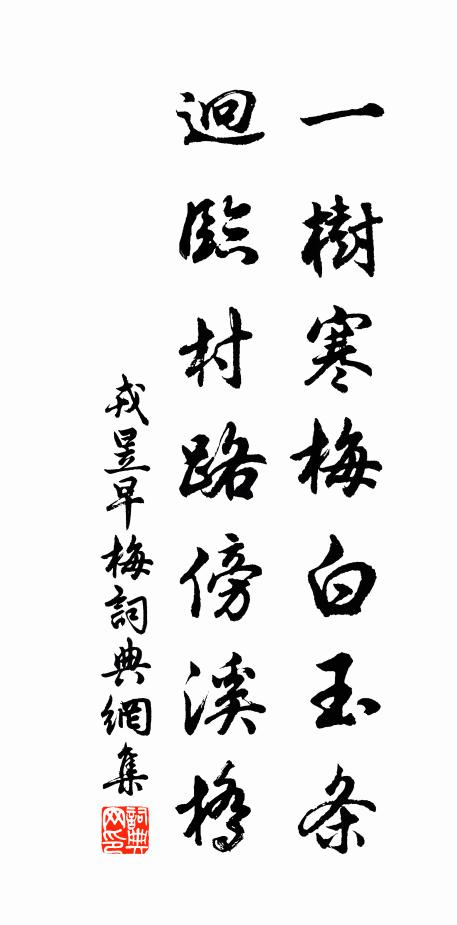 一樹寒梅白玉条
迥臨村路傍溪橋
戎昱早梅詞典網集
詞典网印